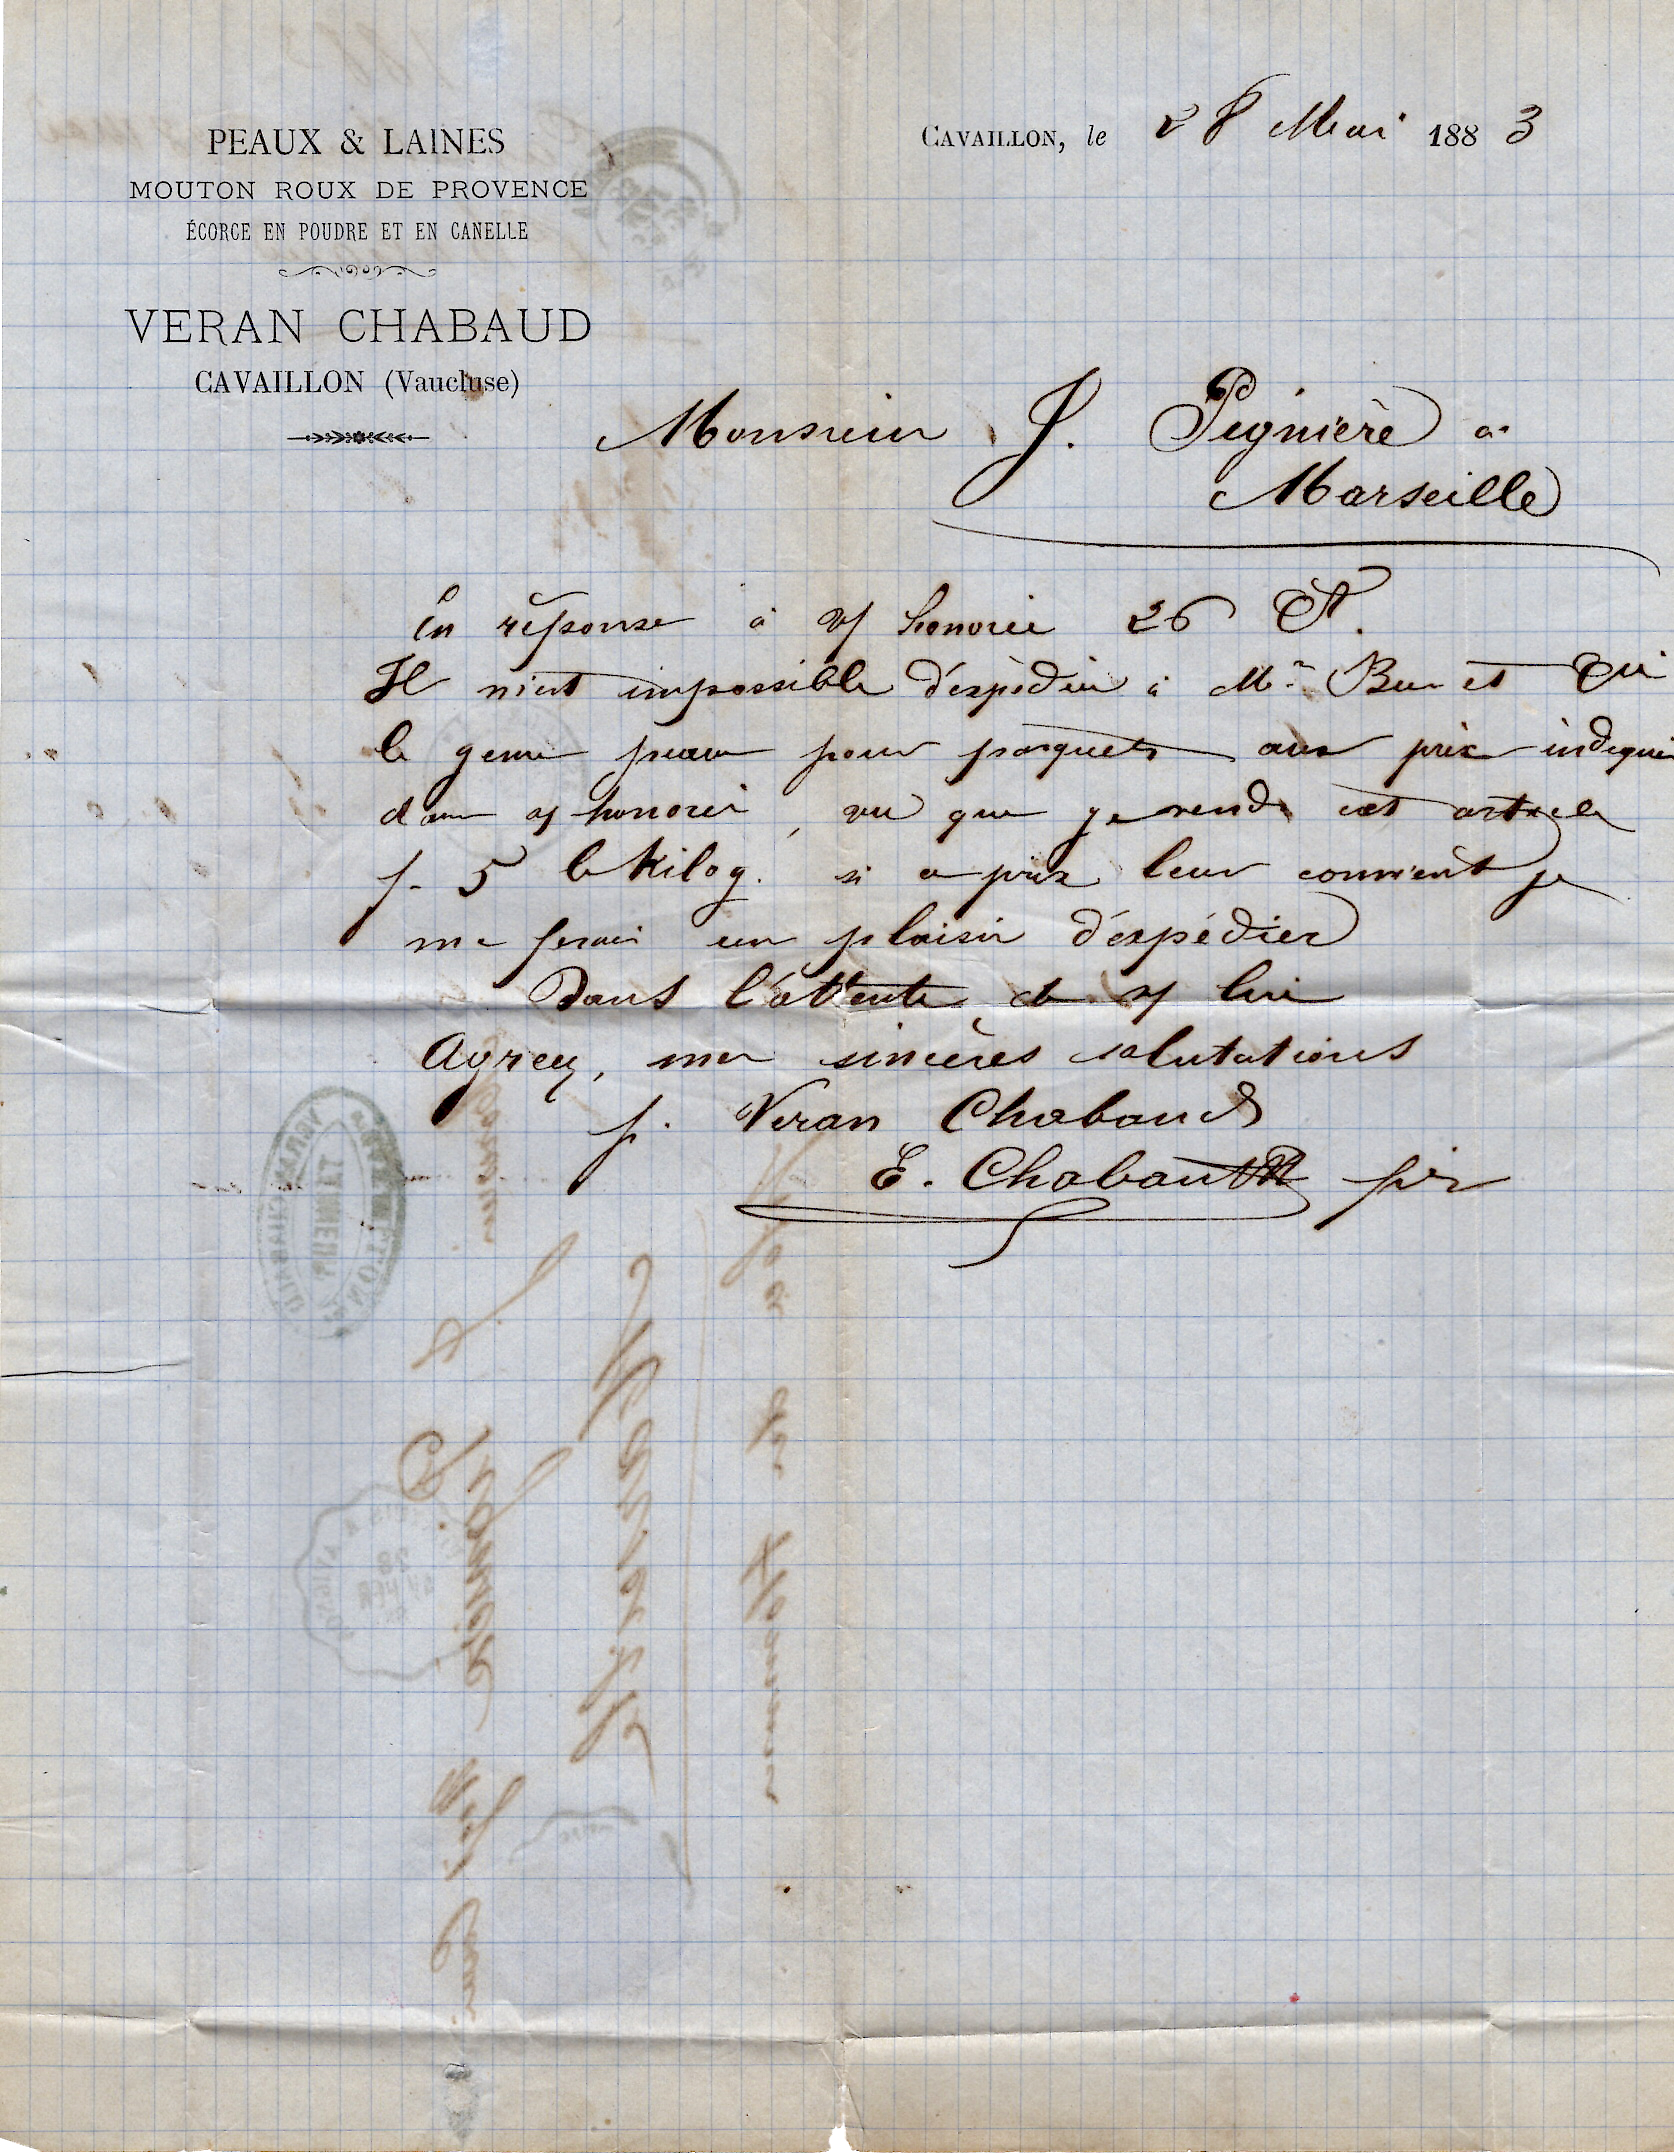 PEAUX & LAINES
MOUTON ROUX DE PROVENCE
ÉCORCE EN POUDRE ET EN CANELLE
VERAN CHABAUD
CAVAILLON (Vaucluse)
CAVAILLON, le 28 Mai 1883
Monsieur J. Pignière a
Marseille
En réponse à v/ honorée 26 Ct.
Il m'est impossible d'expédier à Mr. et
le genre peaux pour parquets aux prix indiqué
dans v/ honorée, vu que je vends cet article
f. 5 le Kilog. si ce prix leur convient je
me ferai un plaisir d'éxpédier
Dans l'attente de v/ lire
Agreez, mes sincères salutations
p. Veran Chabaud
E. Chabaud fils